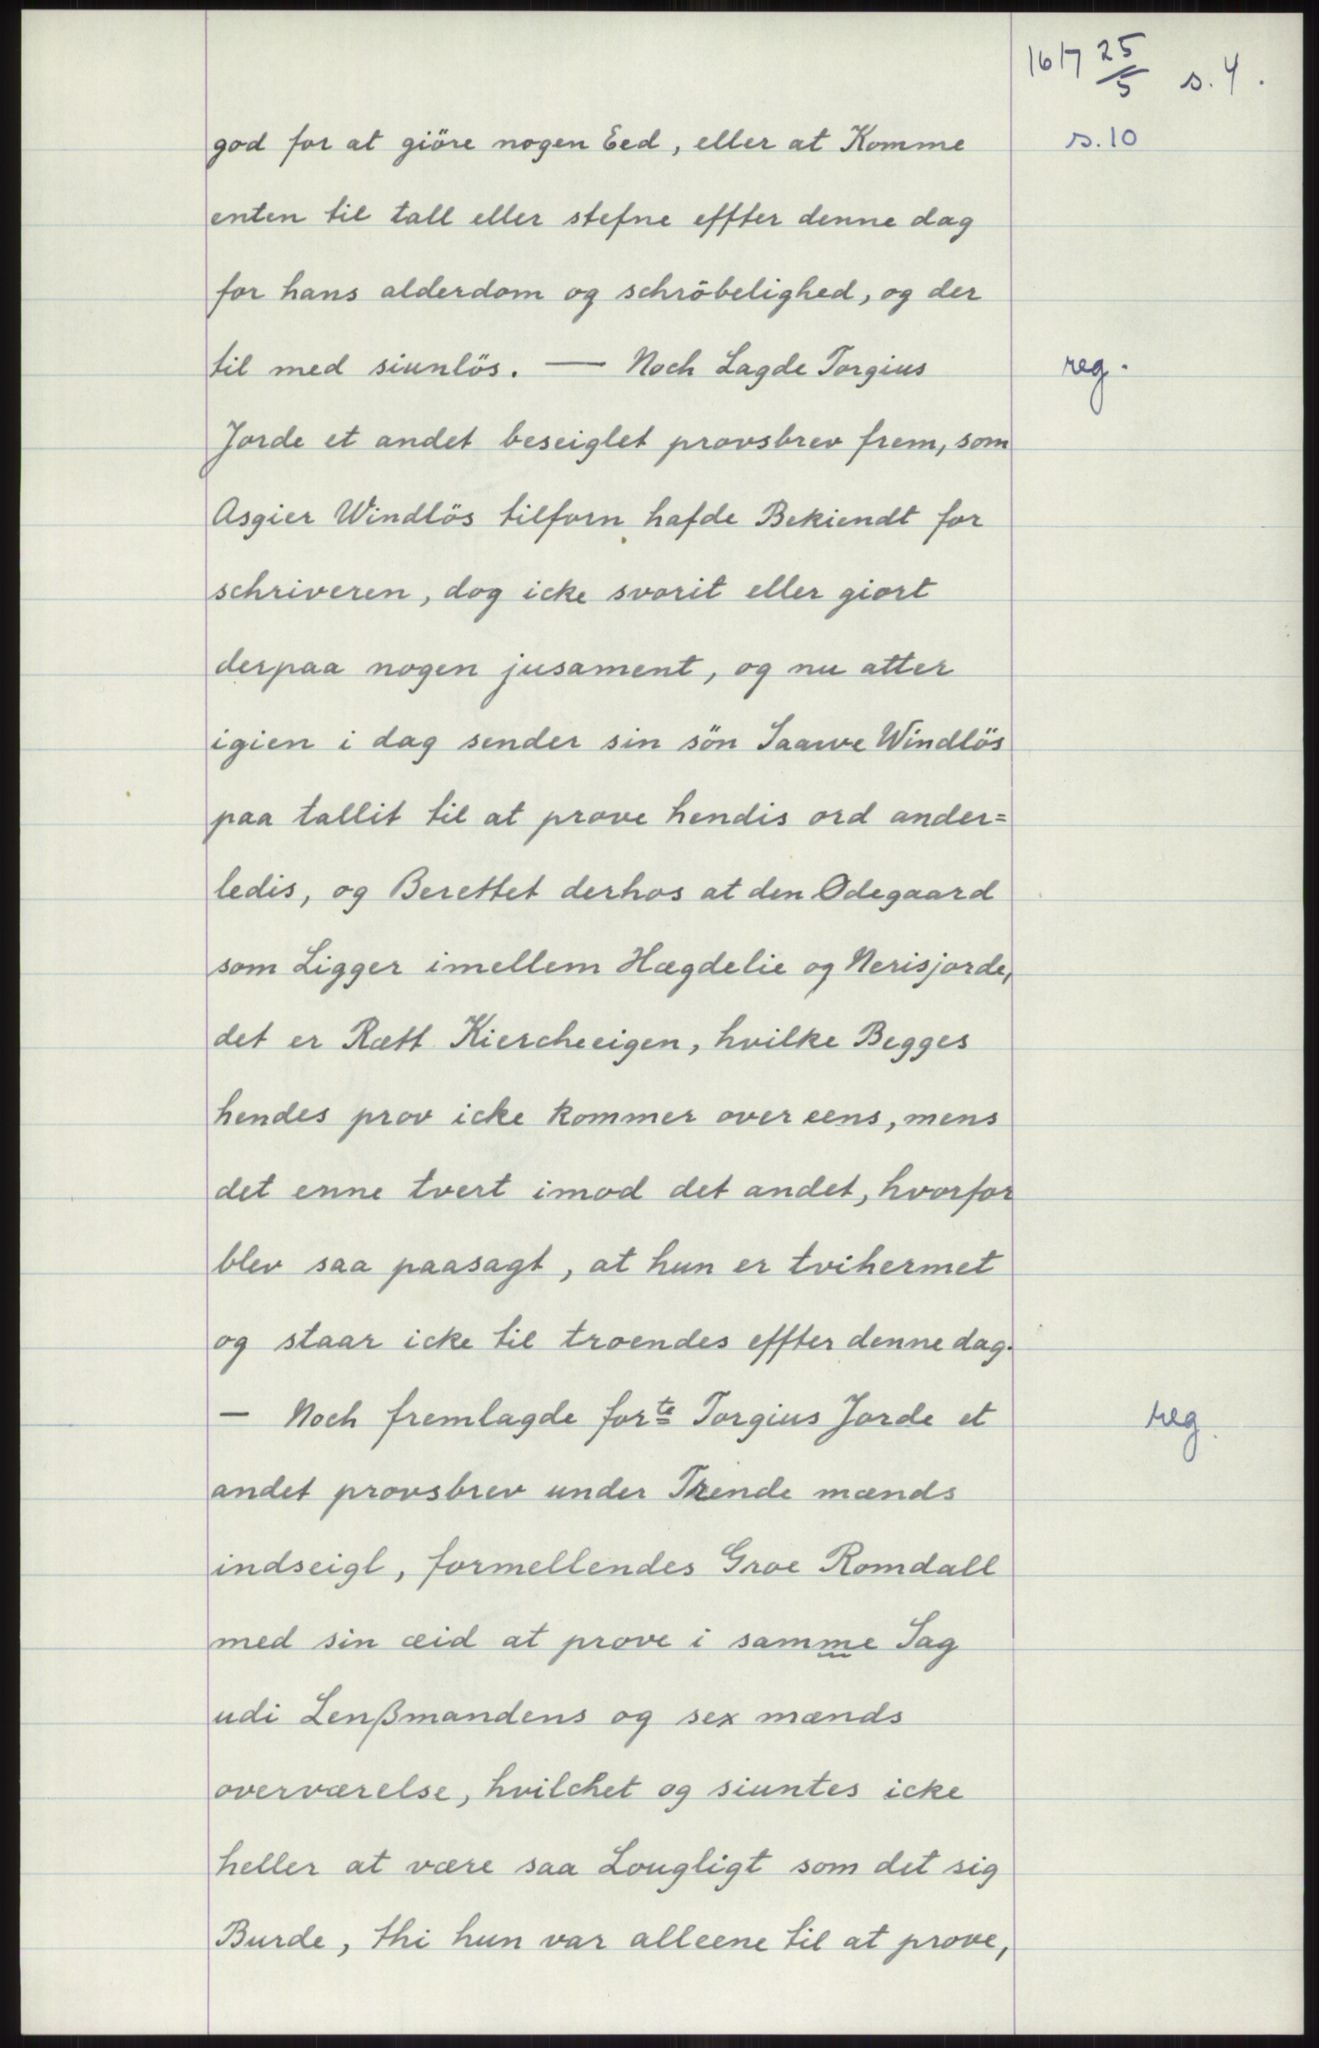 1617 25/5 s. 4.
god for at giöre nogen Eed, eller at Komme
s. 10
enten til tall eller stefne effter denne dag
for hans alderdom og schröbelighed, og der
til med siunlös. — Noch Lagde Torgius
reg.
Jorde et andet beseiglet provsbrev frem, som
Asgier Windlös tilforn hafde Bekiendt for
schriveren, dog icke svorit eller giort
derpaa nogen jusament, og nu atter
igien i dag sender sin sön Saawe Windlös
paa tallit til at prove hendis ord ander=
ledis, og Berettet derhos at den Ødegaard
som Ligger imellem Hægdelie og Nerisjorde,
det er Rætt Kiercheeigen, hvilke Begges
hendes prov icke kommer over eens, mens
det enne tvert imod det andet, hvorfor
blev saa paasagt, at hun er tvihermet
og staar icke til troendes effter denne dag.
— Noch fremlagde forte Torgius Jorde et
reg.
andet provsbrev under Trende mænds
indseigl, formellendes Groe Romdall
med sin æid at prove i samme Sag
udi Lenßmandens og sex mænds
overværelse, hvilchet og siuntes icke
heller at være saa Lougligt som det sig
Burde, thi hun var alleene til at prove,